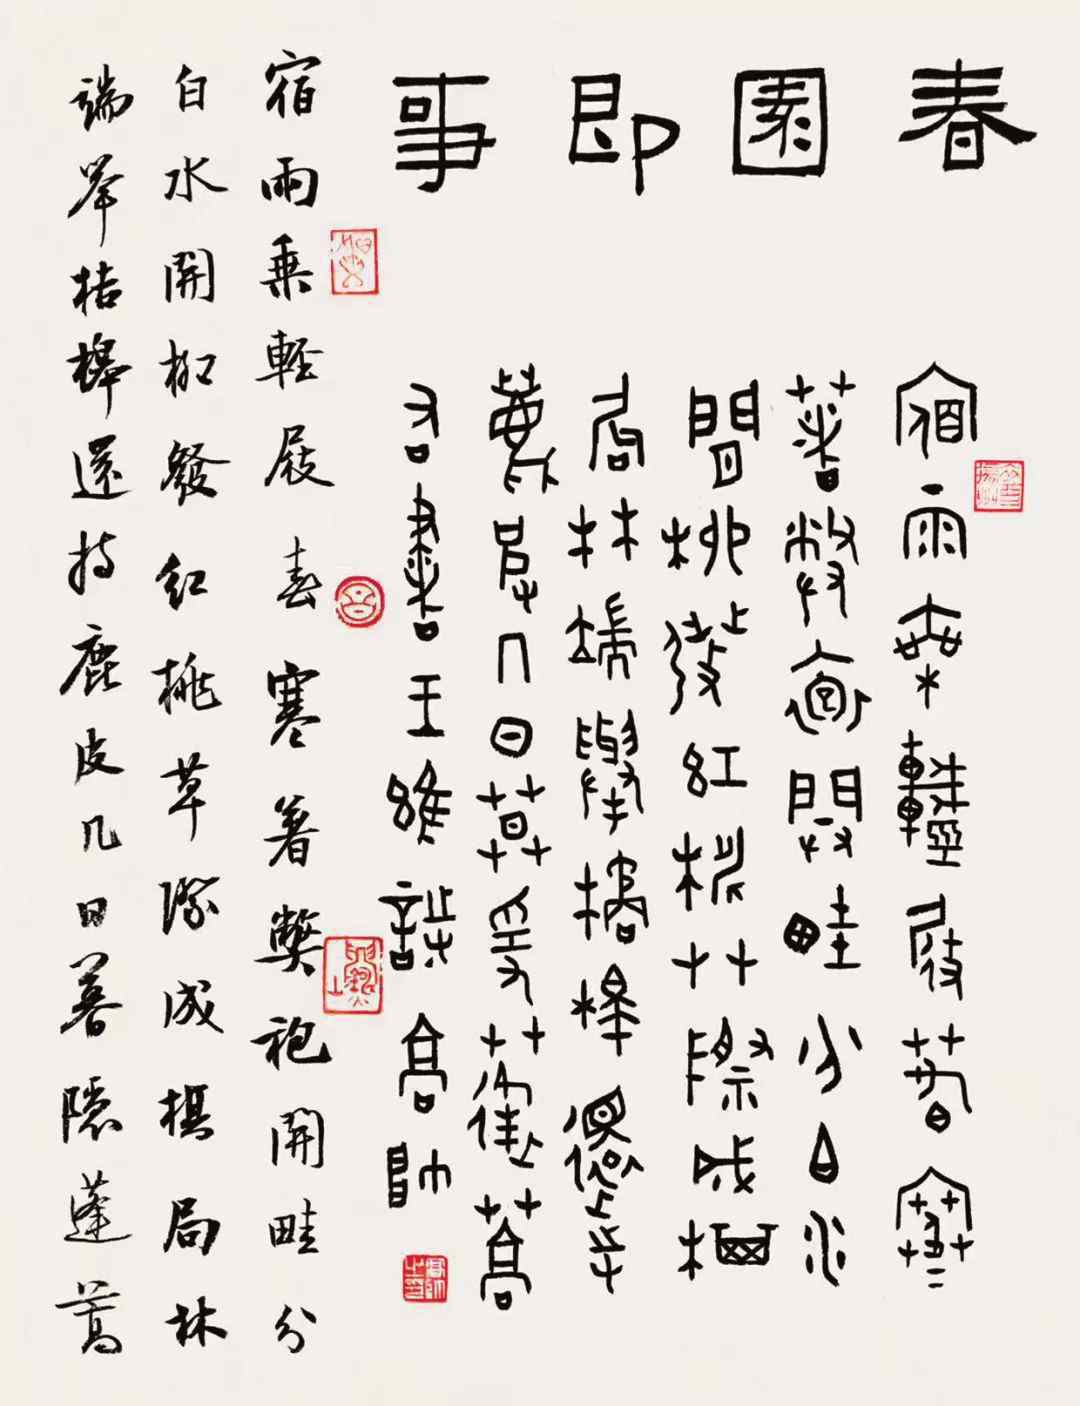 春園即事
宿雨乘輕屐春寒
著敝袍開畦分白水
間柳發紅桃艸際成棋
局林端舉桔槔還持
鹿皮几日暮隱蓬蒿
右書王維詩高帥
宿雨乘輕屐春寒著弊袍開畦分
白水開柳發紅桃草際成棋局林
端举桔槔還持鹿皮几日暮隱蓬蒿